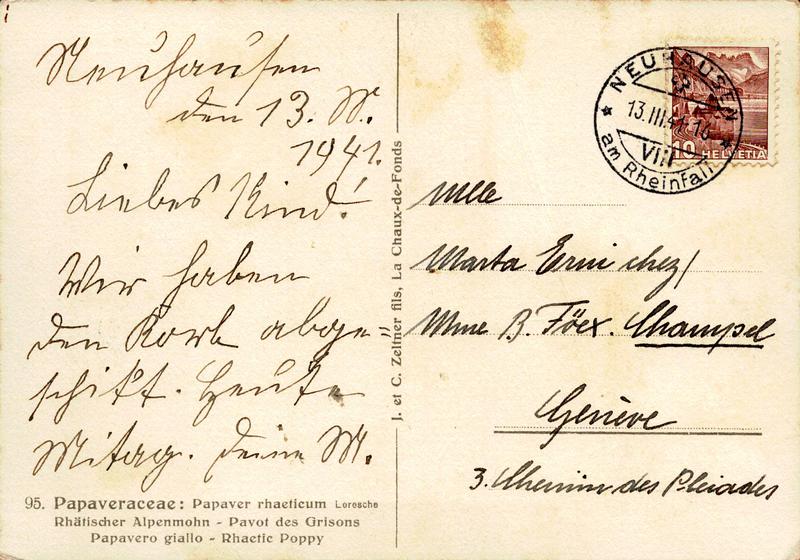 Neuhausen
den 13. M.
1941.
Liebes Kind!
Wir haben
den Korb abge=
schikt. Heute
Mitag. Deine M.
95. Papaveraceae: Papaver rhaeticum Leresche
Rhätischer Alpenmohn - Pavot des Grisons
Papavero giallo - Rhaetic Poppy
J. et C. Zeltner fils, La Chaux-de-Fonds
NEUHAUSEN
13.III.41-14
VIII
am Rheinfall
10 HELVETIA
Mlle
Marta Erni chez/
Mme B. Föex. Champel
Genève
3. Chemin des Pleiades